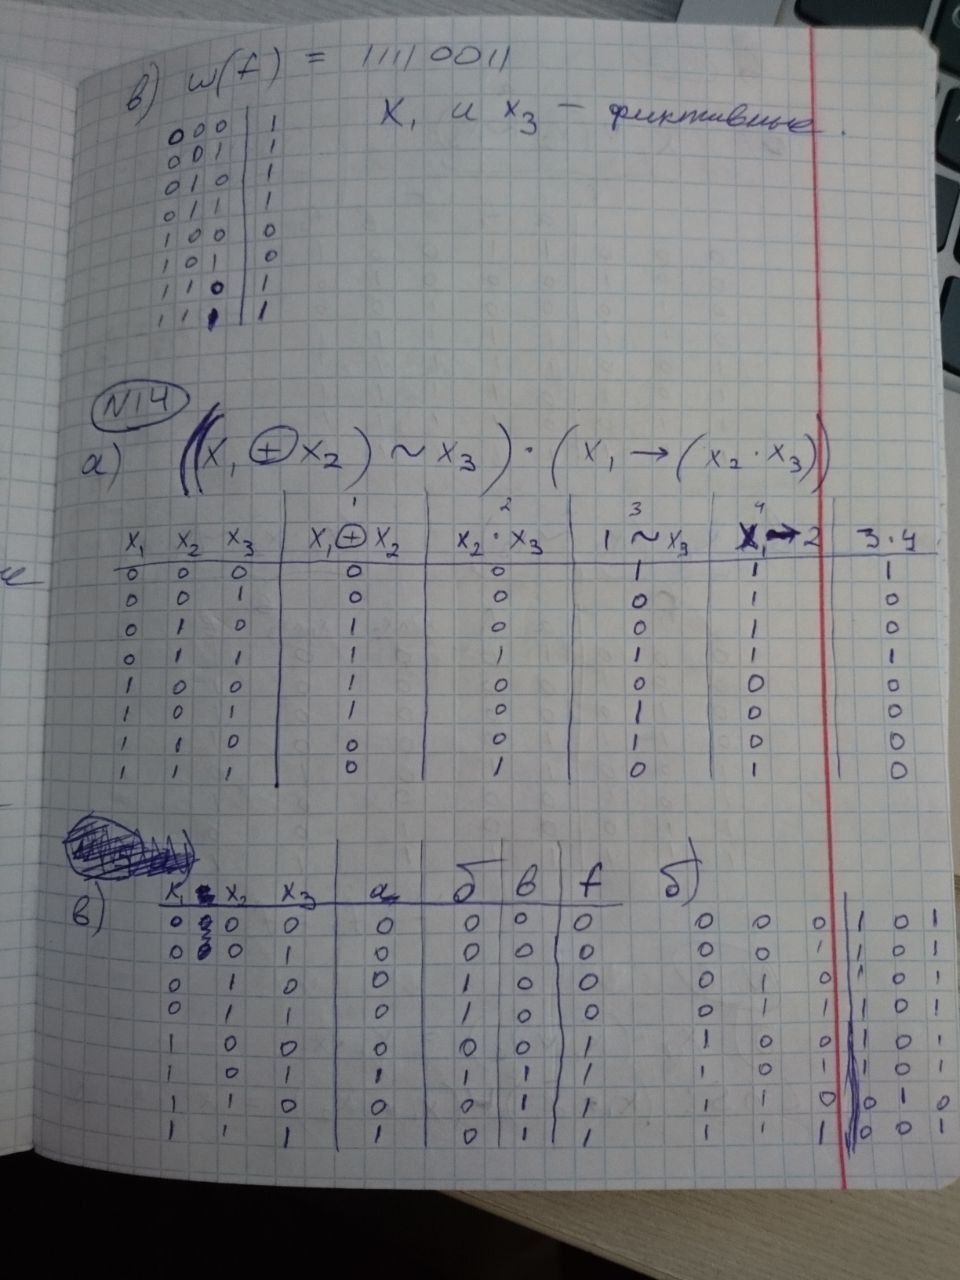 в) w(f) = 11110011
x₁ и x₃ — фиктивные.
0 0 0 | 1
0 0 1 | 1
0 1 0 | 1
0 1 1 | 1
1 0 0 | 0
1 0 1 | 0
1 1 0 | 1
1 1 1 | 1
N14
а) ((x₁ ⊕ x₂) ~ x₃) · (x₁ → (x₂ · x₃))
1 2 3 4
x₁ x₂ x₃ | x₁ ⊕ x₂ | x₂ · x₃ | 1 ~ x₃ | x₁ → 2 | 3 · 4
0 0 0 | 0 | 0 | 1 | 1 | 1
0 0 1 | 0 | 0 | 0 | 1 | 0
0 1 0 | 1 | 0 | 0 | 1 | 0
0 1 1 | 1 | 1 | 1 | 1 | 1
1 0 0 | 1 | 0 | 0 | 0 | 0
1 0 1 | 1 | 0 | 1 | 0 | 0
1 1 0 | 0 | 0 | 1 | 0 | 0
1 1 1 | 0 | 1 | 0 | 1 | 0
в) x₁ x₂ x₃ | а | б | в | f б)
0 0 0 | 0 | 0 | 0 | 0 0 0 0 | 1 0 1
0 0 1 | 0 | 0 | 0 | 0 0 0 1 | 1 0 1
0 1 0 | 0 | 1 | 0 | 0 0 1 0 | 1 0 1
0 1 1 | 0 | 1 | 0 | 0 0 1 1 | 1 0 1
1 0 0 | 0 | 0 | 0 | 1 1 0 0 | 1 0 1
1 0 1 | 1 | 1 | 1 | 1 1 0 1 | 1 0 1
1 1 0 | 0 | 0 | 1 | 1 1 1 0 | 0 1 0
1 1 1 | 1 | 0 | 1 | 1 1 1 1 | 0 0 1